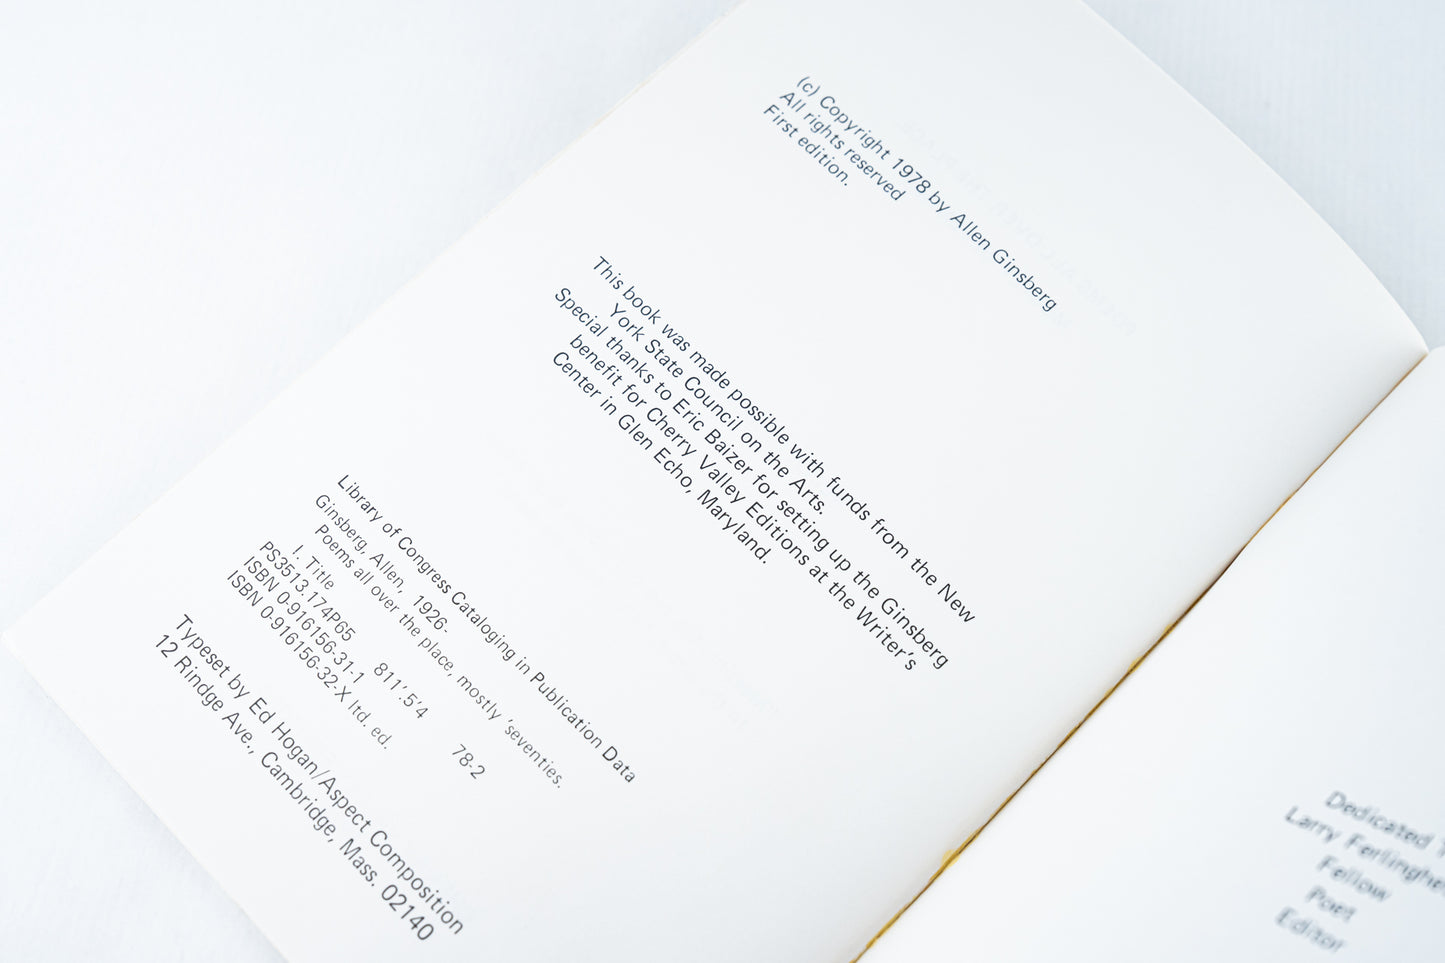 (c) Copyright 1978 by Allen Ginsberg
All rights reserved
First edition.
This book was made possible with funds from the New
York State Council on the Arts.
Special thanks to Eric Baizer for setting up the Ginsberg
benefit for Cherry Valley Editions at the Writer's
Center in Glen Echo, Maryland.
Library of Congress Cataloging in Publication Data
Ginsberg, Allen, 1926-
Poems all over the place, mostly 'seventies.
I. Title
PS3513.174P65 811'.5'4 78-2
ISBN 0-916156-31-1
ISBN 0-916156-32-X ltd. ed.
Typeset by Ed Hogan/Aspect Composition
12 Rindge Ave., Cambridge, Mass. 02140
Dedicated
Larry
Fellow
Poet
Editor